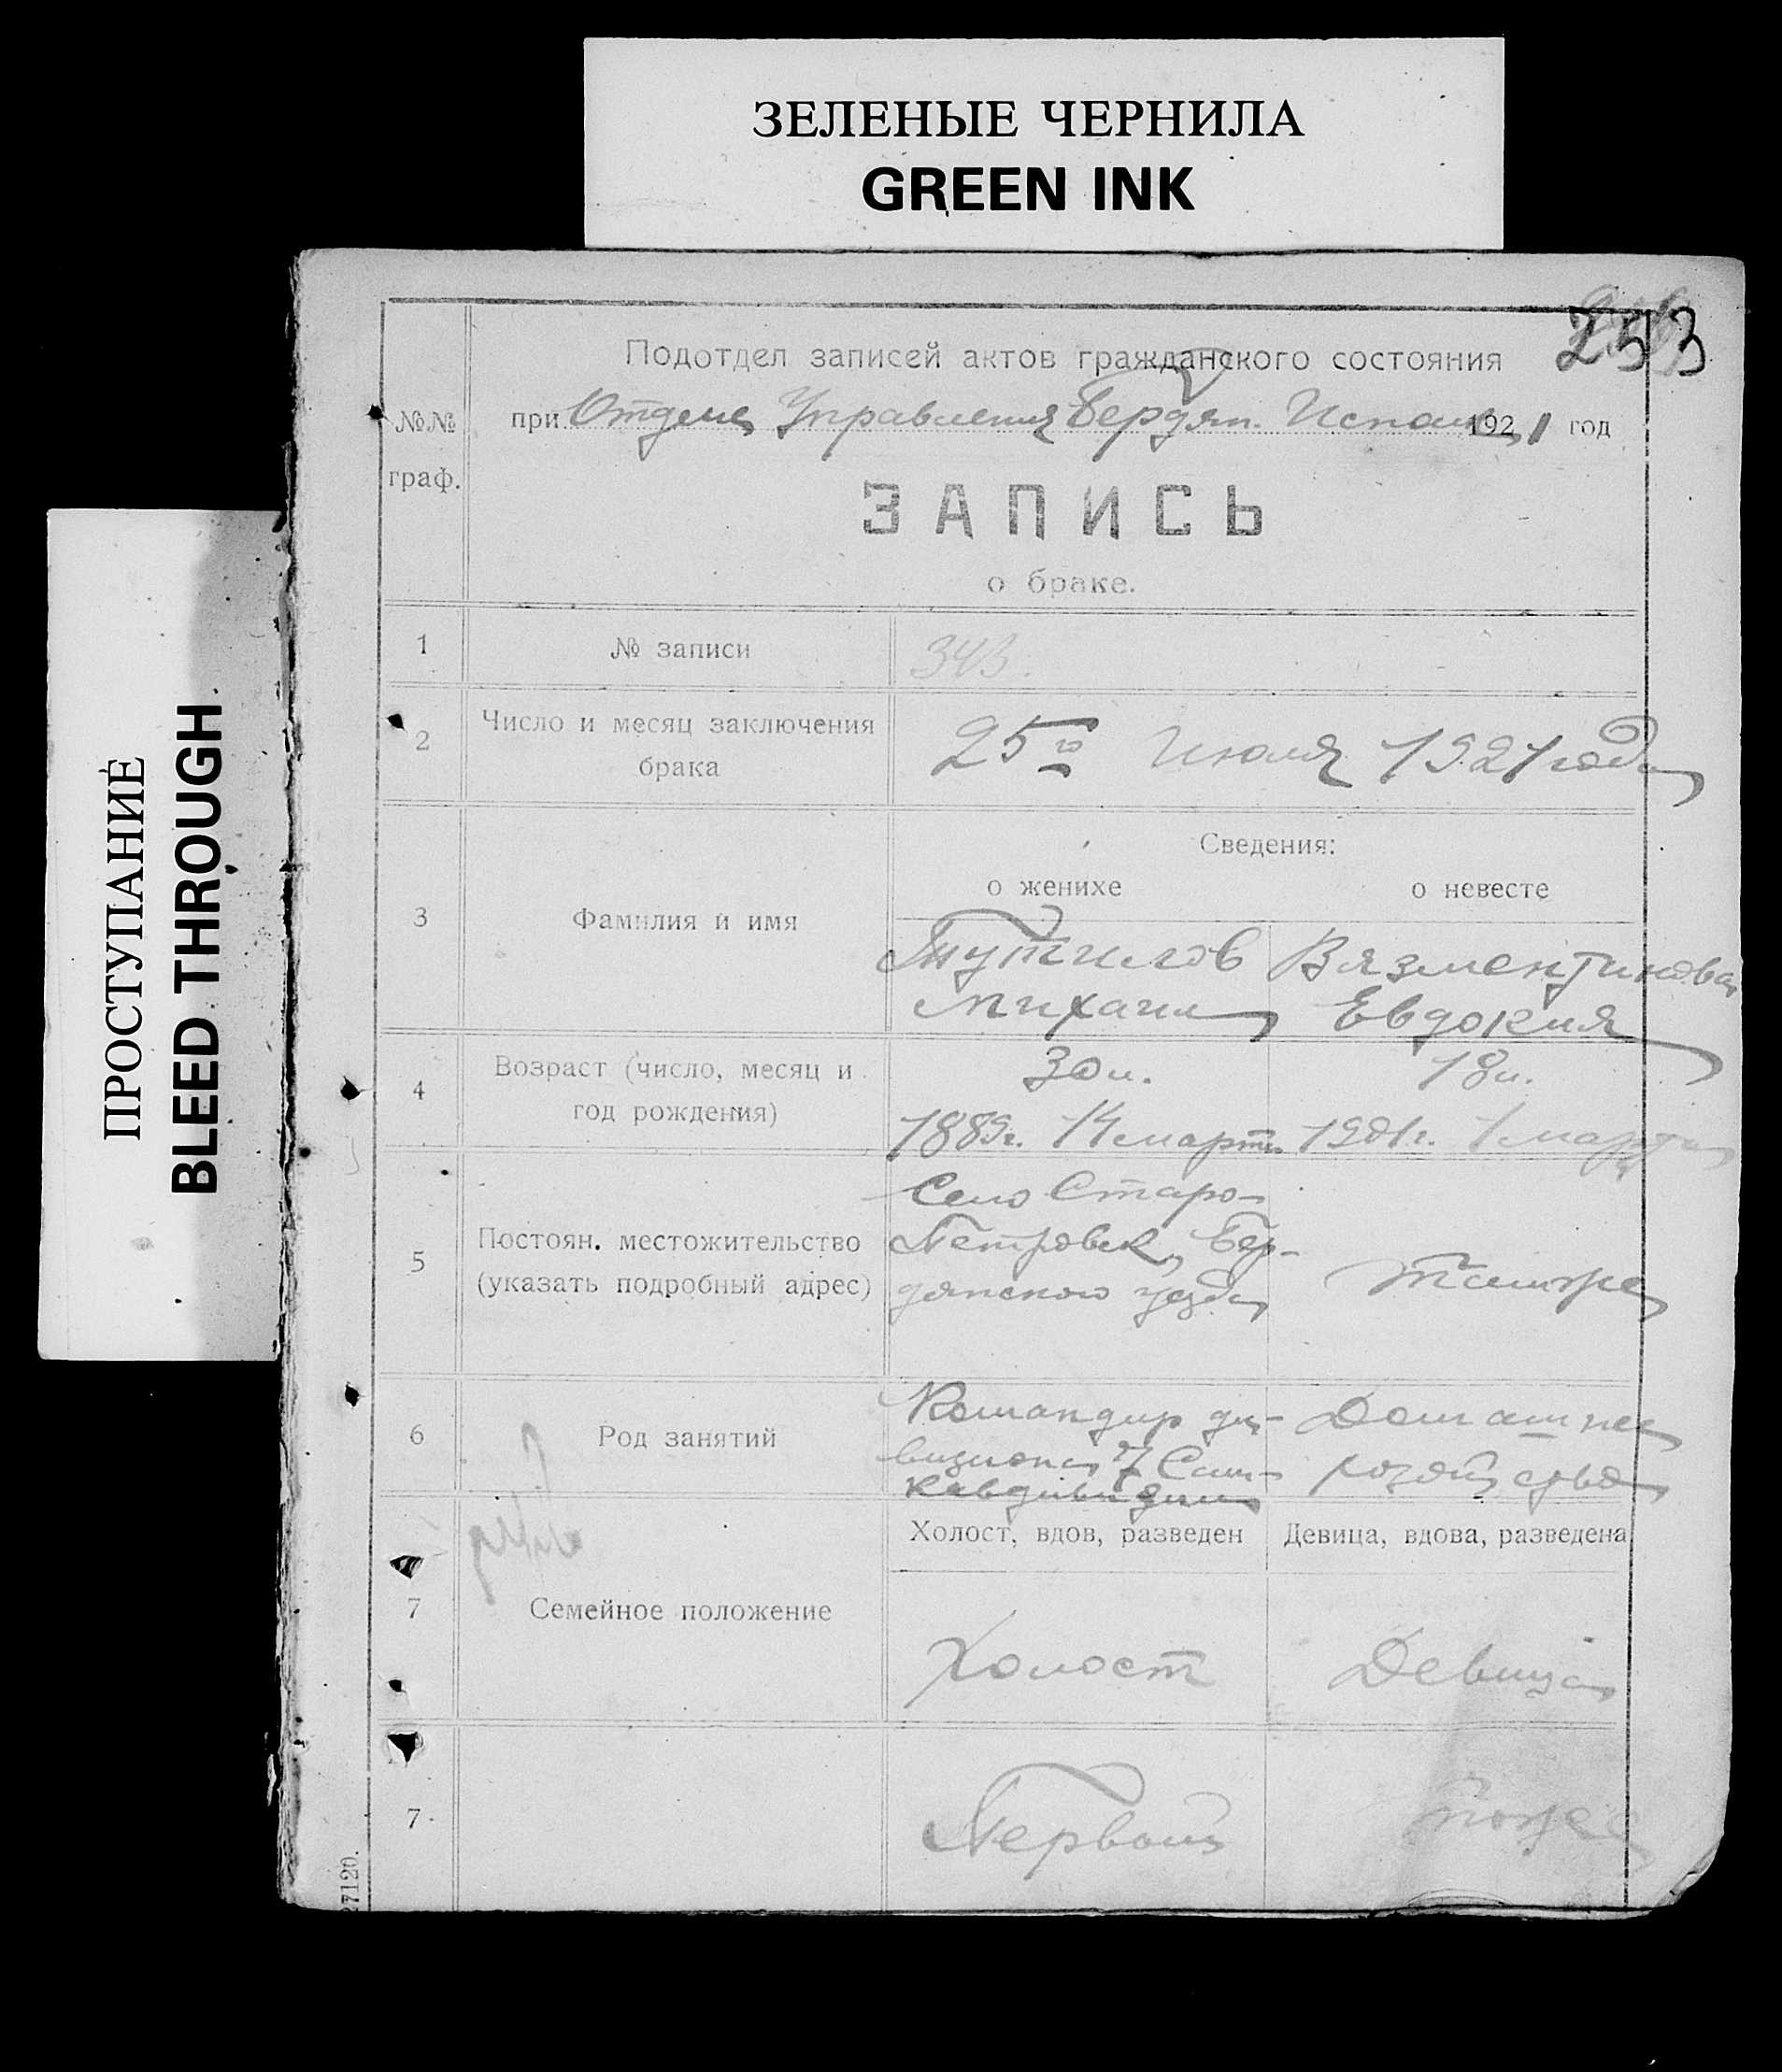 ЗЕЛЕНЫЕ ЧЕРНИЛА
GREEN INK
ПРОСТУПАНИЕ
BLEED THROUGH
253
Подотдел записей актов гражданского состояния
№№ граф.
при Отделе Управления Бердян. Исполк. 1921 год
ЗАПИСЬ
о браке.
1 № записи 343.
2 Число и месяц заключения брака
25го Июля 1921 года
Сведения:
о женихе о невесте
3 Фамилия и имя
Тутилов Вязментинова
Михаил Евдокия
4 Возраст (число, месяц и год рождения)
30 л. 18 л.
1889г. 14 марта 1901г. 1 марта
5 Постоян. местожительство (указать подробный адрес)
Село Старо-
Петровск, Бер-
дянского уезда
6 Род занятий
Командир ди- Домашнее
визиона 7 Сам-
Кавдивизии
Холост, вдов, разведен Девица, вдова, разведена
7 Семейное положение
Холост Девица
7 Первый тоже
27120.